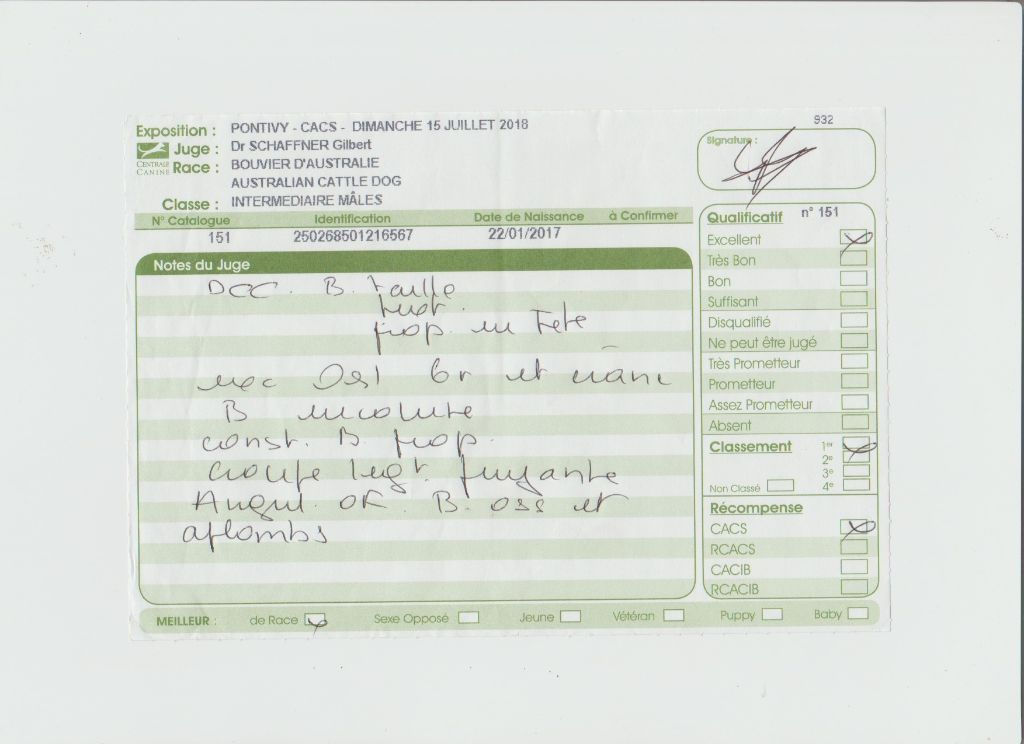 932
Exposition : PONTIVY - CACS - DIMANCHE 15 JUILLET 2018
Juge : Dr SCHAFFNER Gilbert
CENTRALE CANINE
Race : BOUVIER D'AUSTRALIE
AUSTRALIAN CATTLE DOG
Classe : INTERMEDIAIRE MÂLES
Signature :
N° Catalogue Identification Date de Naissance à Confirmer
151 250268501216567 22/01/2017
Notes du Juge
DCC. B. taille
prop. en Tete
et crane
B encolure
const. B. prop.
croupe legt. fuyante
Angul. OK. B. oss et
aplombs
Qualificatif n° 151
Excellent
Très Bon
Bon
Suffisant
Disqualifié
Ne peut être jugé
Très Prometteur
Prometteur
Assez Prometteur
Absent
Classement 1er
2e
3e
Non Classé 4e
Récompense
CACS
RCACS
CACIB
RCACIB
MEILLEUR : de Race Sexe Opposé Jeune Vétéran Puppy Baby